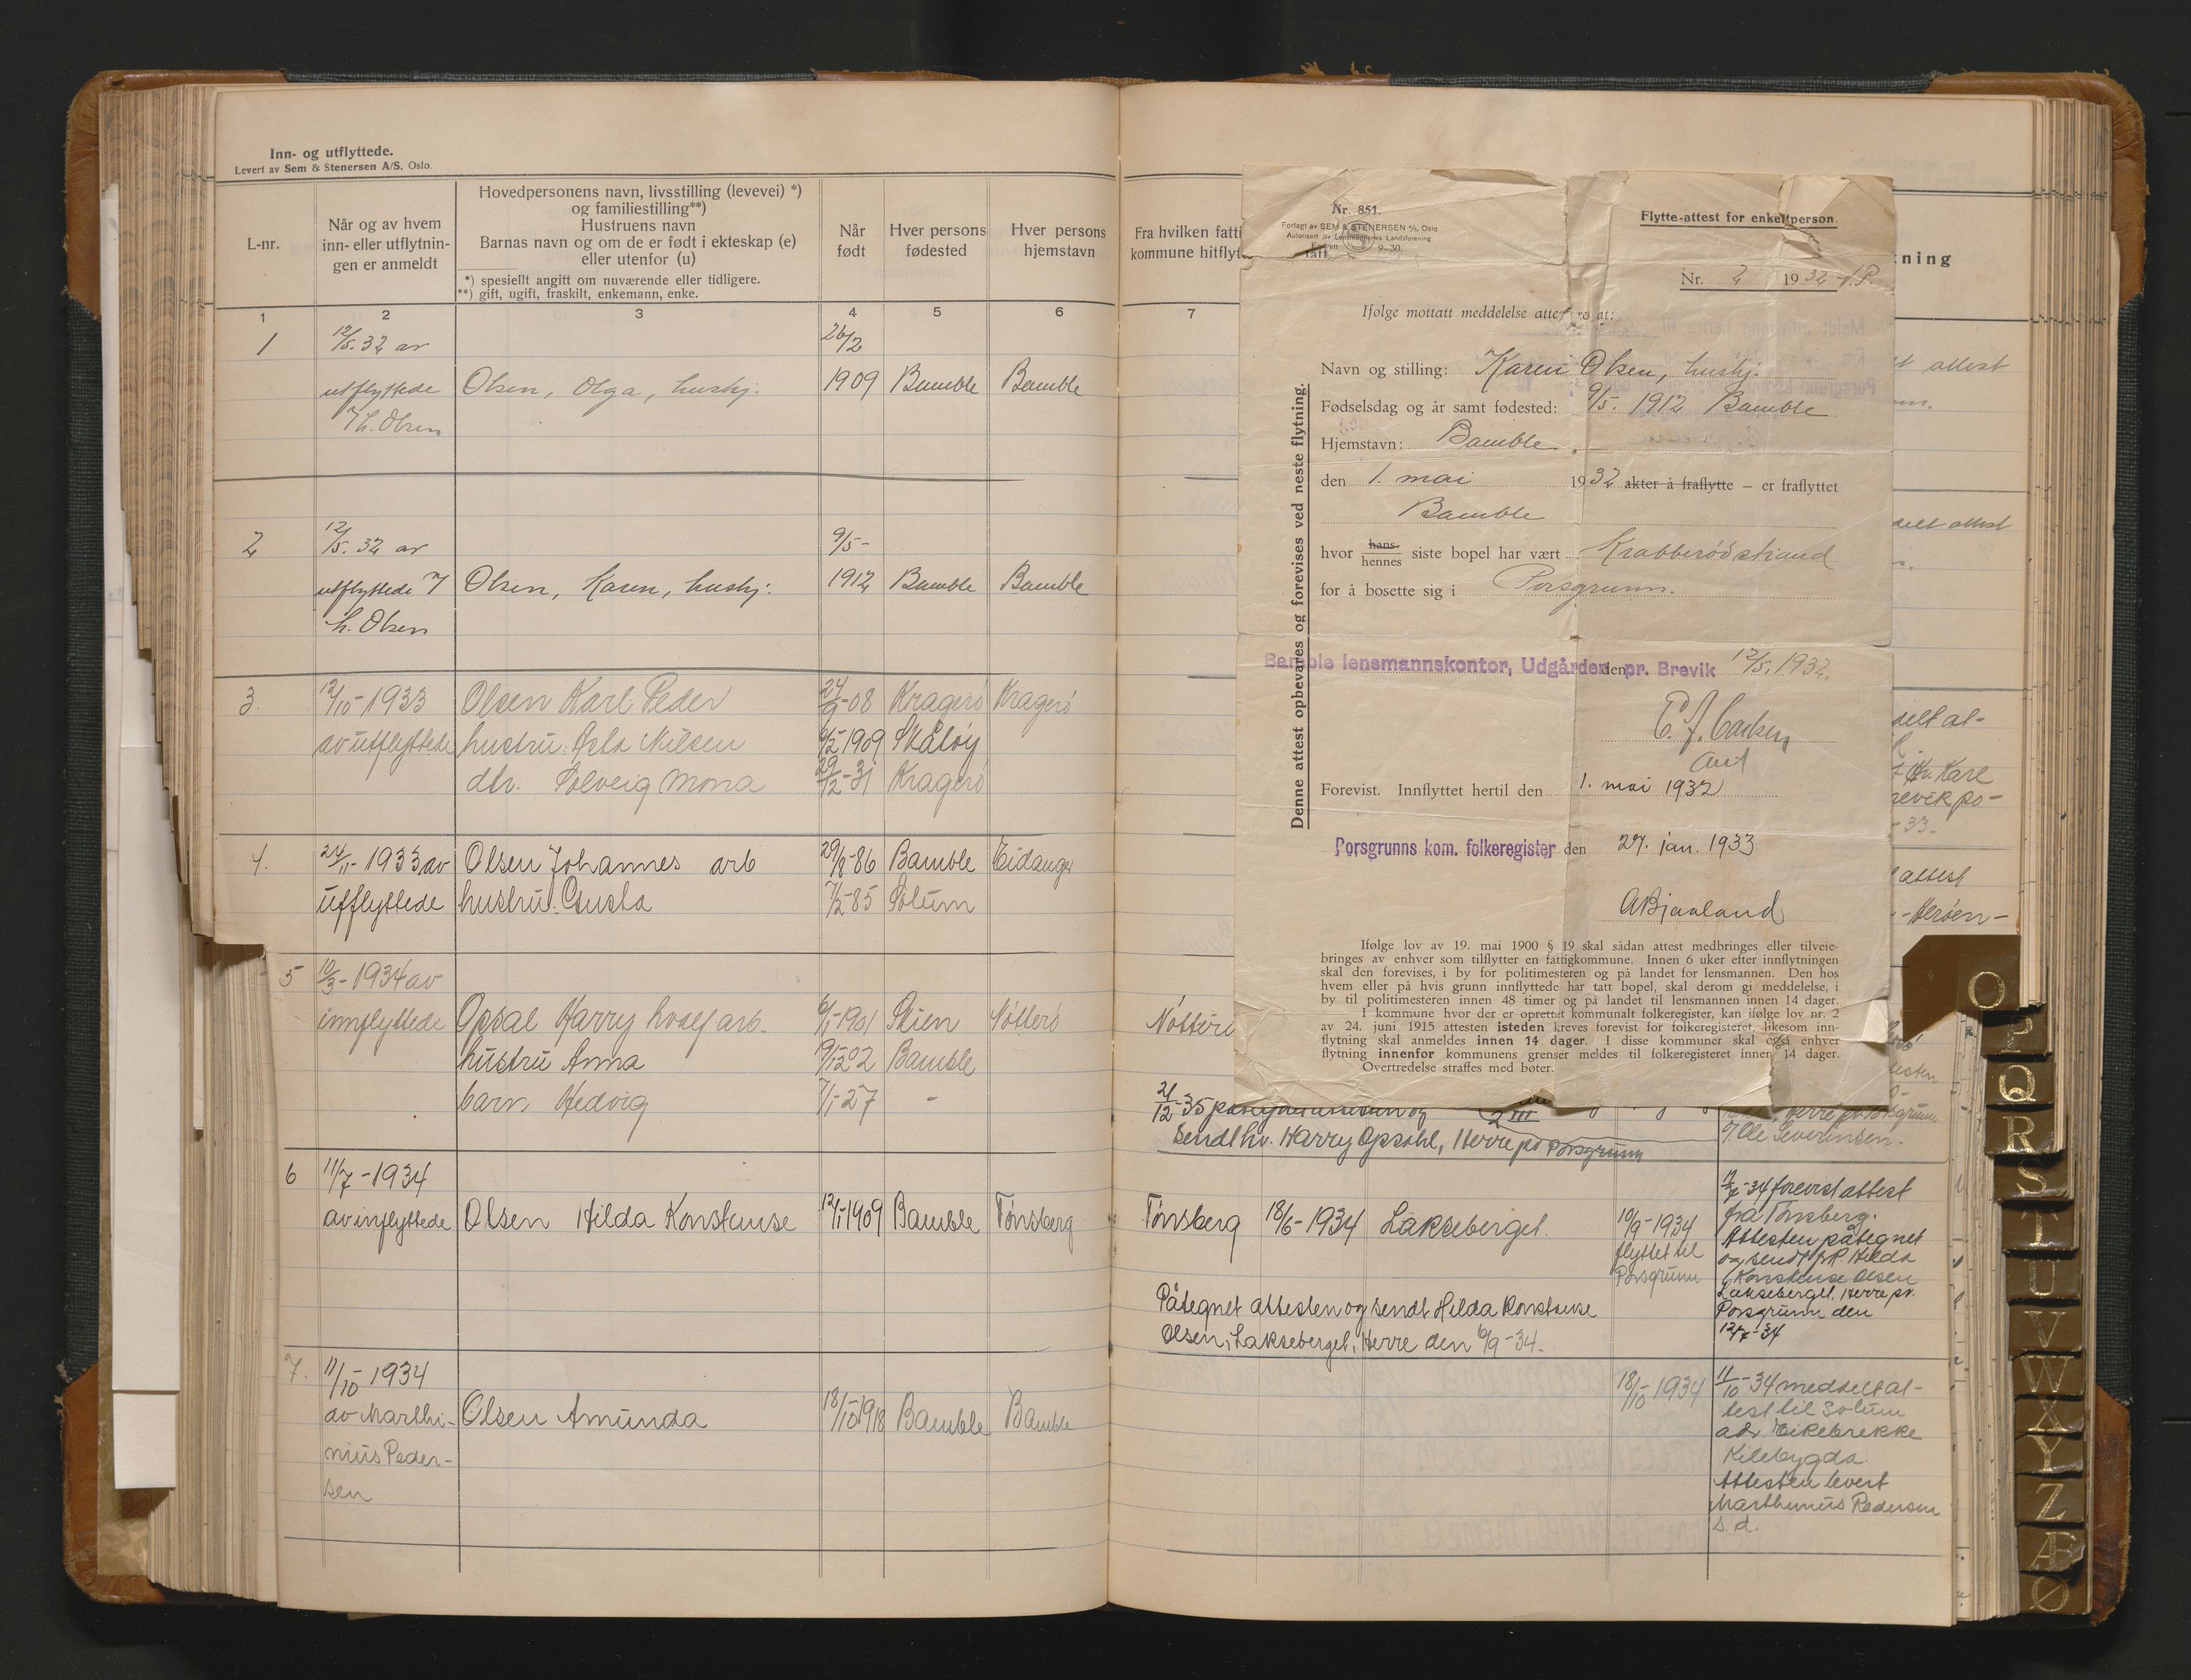 Inn- og utflyttede.
Levert av Sem & Stenersen A/S. Oslo.
L-nr.
Når og av hvem
inn- eller utflytnin-
gen er anmeldt
Hovedpersonens navn, livsstilling (levevei) *)
og familiestilling**)
Hustruens navn
Barnas navn og om de er født i ekteskap (e)
eller utenfor (u)
*) spesielt angitt om nuværende eller tidligere.
**) gift, ugift, fraskilt, enkemann, enke.
Når
født
Hver persons
fødested
Hver persons
hjemstavn
1 2 3 4 5 6
1 12/5. 32 av 26/2
utflyttede Olsen, Olga, hushj. 1909 Bamble Bamble
H. Olsen
2 12/5. 32 av 9/5-
utflyttede Olsen, Karen, hushj. 1912 Bamble Bamble
H. Olsen
3. 12/10-1933 Olsen Karl Peder 24/9-08 Kragerø Kragerø
av utflyttede hustru: Asta Nilsen 1909 Skåtøy
dtr. Solveig Mona 29/12-31 Kragerø
4. 24/11-1933 av Olsen Johannes arb 29/8-86 Bamble Eidanger
utflyttede hustru Gusta 7/2-85 Solum
5 10/3-1934 av
innflyttede Opsal Harry arb. 6/1-1901 Skien Nøtterø
hustru Anna 02 Bamble
barn Hedvig 7/1-27 -
6 11/7-1934
av inflyttede Olsen Hilda Konstanse 12/1-1909 Bamble Tønsberg
7. 11/10-1934
av Marthi- Olsen Amunda 18/10-1918 Bamble Bamble
nius Peder-
sen
Fra hvilken fatti
kommune hitflyt
7
ning
Nr. 851.
Forlagt av SEM & STENERSEN A/S, Oslo
Autorisert av Lensmennenes Landsforening
9-30.
Flytte-attest for enkeltperson.
Nr. 2 1932
Ifølge mottatt meddelelse atte res at:
Navn og stilling: Karen Olsen, hushj.
Fødselsdag og år samt fødested: 9/5. 1912 Bamble
Hjemstavn: Bamble.
den 1. mai 1932 akter å fraflytte – er fraflyttet
Bamble
hvor hans hennes siste bopel har vært Krabberødstrand
for å bosette sig i Porsgrunn.
Bamble lensmannskontor, Udgården pr. Brevik den 12/5. 1932.
Forevist. Innflyttet hertil den 1. mai 1932
Porsgrunns kom. folkeregister den 27. jan. 1933
ABjaaland
Ifølge lov av 19. mai 1900 § 19 skal sådan attest medbringes eller tilveie-
bringes av enhver som tilflytter en fattigkommune. Innen 6 uker efter innflytningen
skal den forevises, i by for politimesteren og på landet for lensmannen. Den hos
hvem eller på hvis grunn innflyttede har tatt bopel, skal derom gi meddelelse, i
by til politimesteren innen 48 timer og på landet til lensmannen innen 14 dager.
I kommune hvor der er oprettet kommunalt folkeregister, kan ifølge lov nr. 2
av 24. juni 1915 attesten isteden kreves forevist for folkeregisteret, likesom inn-
flytning skal anmeldes innen 14 dager. I disse kommuner skal også enhver
flytning innenfor kommunens grenser meldes til folkeregisteret innen 14 dager.
Overtredelse straffes med bøter.
Denne attest opbevares og forevises ved neste flytning.
attest
attest
Karl
Brevik po-
-33.
attest
-Herøen-
Nøtterø
21/12-35 påtegnet attesten og
sendt hr. Harry Opsahl, Herre pr Porsgrunn
Herre pr. Porsgrunn
v/ Ole Severinsen.
Tønsberg 18/6-1934 Lakseberget. 10/9-1934
flyttet til
Porsgrunn
12/7-34 forevist attest
fra Tønsberg.
Attesten påtegnet
og sendt frk. Hilda
Konstanse Olsen
Lakseberget, Herre pr.
Porsgrunn den
12/7-34
Påtegnet attesten og sendt Hilda Konstanse
Olsen, Lakseberget, Herre den 6/9-34.
18/10-1934
11/10-34 meddelt at-
test til Solum
adr. Eikebrekke
Kilebygda.
Attesten levert
Marthinius Pedersen
s. d.
O
P
Q
R
S
T
U
V
W
X
Y
Z
Æ
Ø